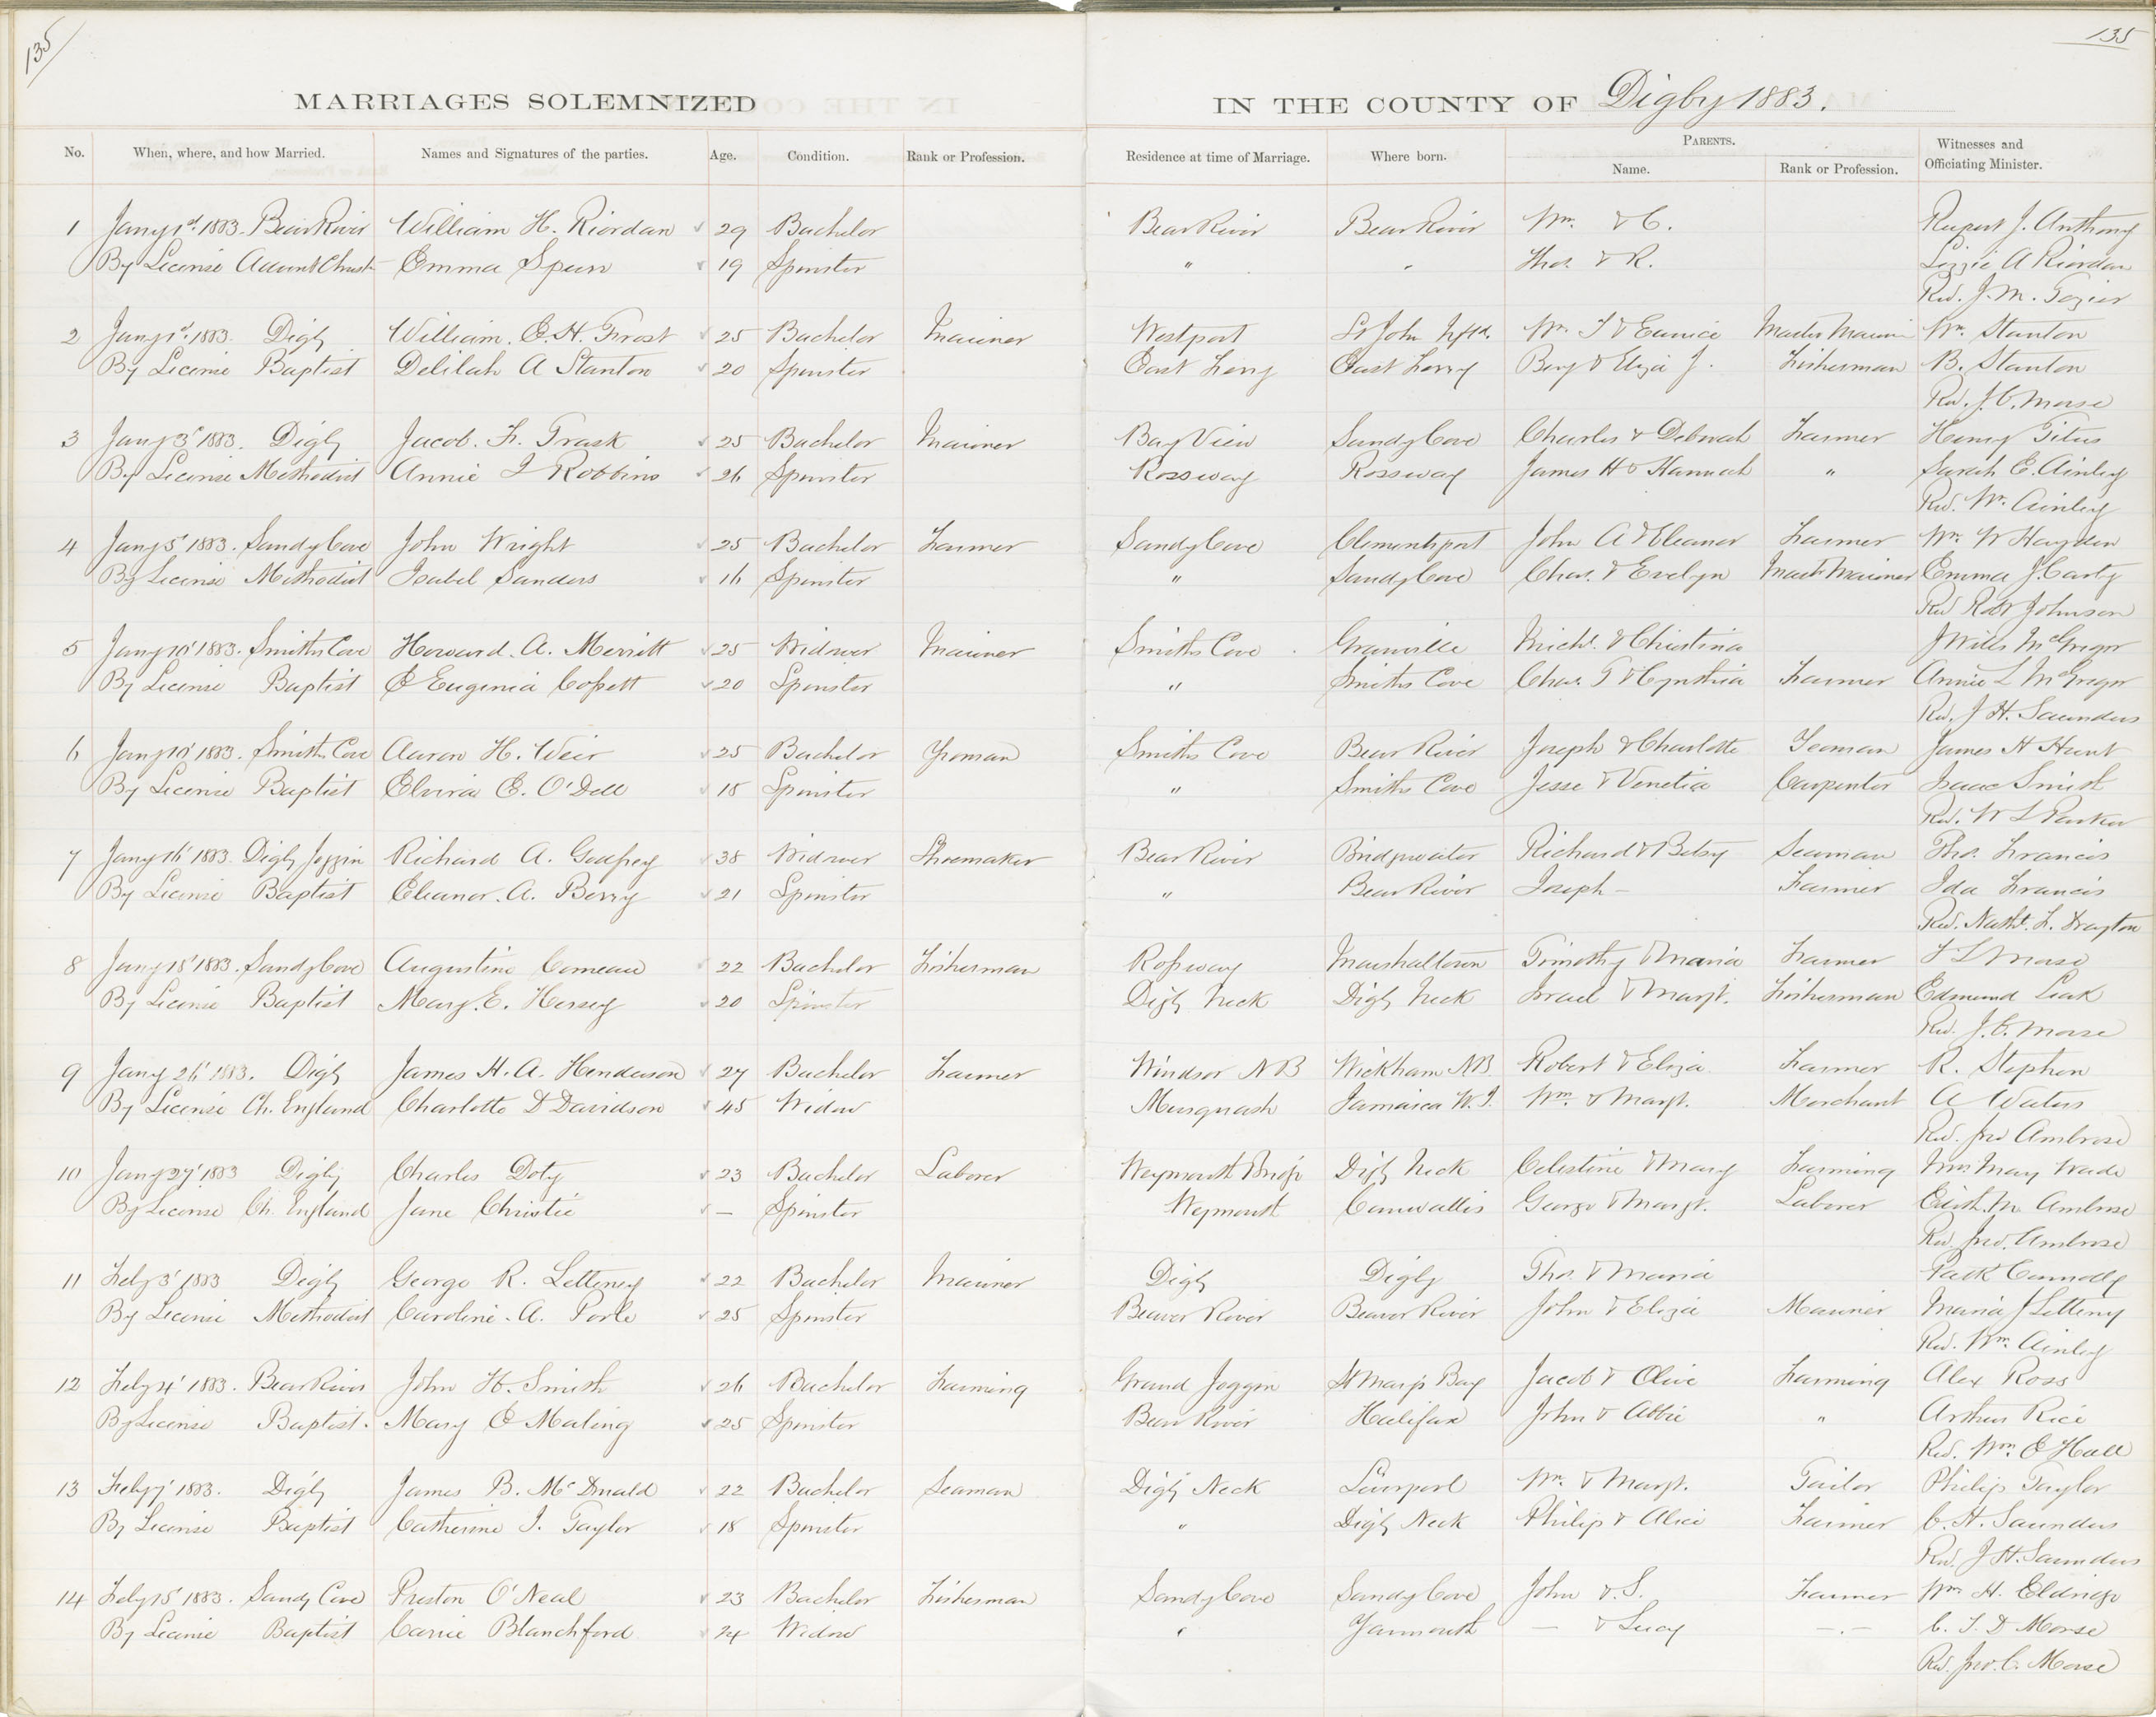 135 135
MARRIAGES SOLEMNIZED IN THE COUNTY OF Digby 1883.
No. When, where, and how Married. Names and Signatures of the parties. Age. Condition. Rank or Profession. Residence at time of Marriage. Where born. PARENTS. Name. Rank or Profession. Witnesses and Officiating Minister.
1 Jany 1st 1883. Bear River William H. Riordan 29 Bachelor Bear River Bear River Wm. & C. Rupert J. Anthony
By License Advent Christ Emma Spurr 19 Spinster " " Thos. & R. Lizzie A Riordan
Rev. J. M.
2 Jany 1st 1883. Digby William. E. H. Frost 25 Bachelor Mariner Westport St John Nfld. Wm. T & Eunice Master Mariner Wm. Stanton
By License Baptist Delilah A Stanton 20 Spinster East Ferry East Ferry Benj & Eliza J. Fisherman B. Stanton
Rev. J. C. Morse
3 Jany 3d 1883. Digby Jacob. F. Trask 25 Bachelor Mariner Bay View Sandy Cove Charles & Deborah Farmer Henry Titus
By License Methodist Annie I Robbins 26 Spinster Rossway Rossway James H & Hannah " Sarah E. Ainley
Rev. Wm. Ainley
4 Jany 5' 1883. Sandy Cove John Wright 25 Bachelor Farmer Sandy Cove Clementsport John A & Eleanor Farmer Wm. W Hayden
By License Methodist Isabel Sanders 16 Spinster " Sandy Cove Chas. & Evelyn Master Mariner Emma J. Carty
Rev Robt Johnson
5 Jany 10' 1883. Smiths Cove Howard. A. Merritt 25 Widower Mariner Smiths Cove Granville Michl. & Christina J Wills McGregor
By License Baptist E Eugenia Cossett 20 Spinster " Smiths Cove Chas. T & Cynthia Farmer Annie L McGregor
Rev. J H. Saunders
6 Jany 10' 1883. Smiths Cove Aaron H. Weir 25 Bachelor Yeoman Smiths Cove Bear River Joseph & Charlotte Yeoman James H Hunt
By License Baptist Elvira E. O'Dell 18 Spinster " Smiths Cove Jesse & Venetia Carpenter Isaac Smith
Rev. W L Parker
7 Jany 16' 1883. Digby Joggin Richard A. Godfrey 38 Widower Shoemaker Bear River Bridgwater Richard & Betsy Seaman Thos. Francis
By License Baptist Eleanor. A. Berry 21 Spinster " Bear River Joseph — Farmer Ida Francis
Rev. Nathl. F. Drayton
8 Jany 18' 1883. Sandy Cove Augustine Comeau 22 Bachelor Fisherman Rossway Marshalltown Timothy & Maria Farmer F L Morse
By License Baptist Mary. E. Hersey 20 Spinster Digby Neck Digby Neck Israel & Margt. Fisherman Edmund Leak
Rev. J. C. Morse
9 Jany 26' 1883. Digby James H. A. Henderson 27 Bachelor Farmer Windsor NB Wickham NB. Robert & Eliza Farmer R. Stephen
By License Ch. England Charlotte D Davidson 45 Widow Musquash Jamaica W.I. Wm. & Margt. Merchant A Waters
Rev. Jno Ambrose
10 Jany 27' 1883 Digby Charles Doty 23 Bachelor Laborer Weymouth Bridge Digby Neck Celestine & Mary Farming Mrs. May Wade
By License Ch. England Jane Christie — Spinster Weymouth Cornwallis George & Margt. Laborer Edith. M. Ambrose
Rev Jno. Ambrose
11 Feby 3' 1883 Digby George R. Letteney 22 Bachelor Mariner Digby Digby Thos. & Maria Patk Connolly
By License Methodist Caroline. A. Porle 25 Spinster Beaver River Beaver River John & Eliza Mariner Maria J Letteny
Rev. Wm. Ainley
12 Feby 4' 1883. Bear River John H. Smith 26 Bachelor Farming Grand Joggin St Marys Bay Jacob & Olive Farming Alex Ross
By License Baptist. Mary E Maling 25 Spinster Bear River Halifax John & Abbie " Arthur Rice
Rev. Wm. E Hall
13 Feby 7' 1883. Digby James B. McDonald 22 Bachelor Seaman Digby Neck Liverpool Wm. & Margt. Tailor Philip Taylor
By License Baptist Catherine I. Taylor 18 Spinster " Digby Neck Philip & Alice Farmer C. H. Saunders
Rev. J H. Saunders
14 Feby 15' 1883. Sandy Cove Preston O'Neal 23 Bachelor Fisherman Sandy Cove Sandy Cove John & S. Farmer Wm H. Eldridge
By License Baptist Carrie Blanchford 24 Widow " Yarmouth — & Lucy —.— C. I. D Morse
Rev. Jno. C. Morse